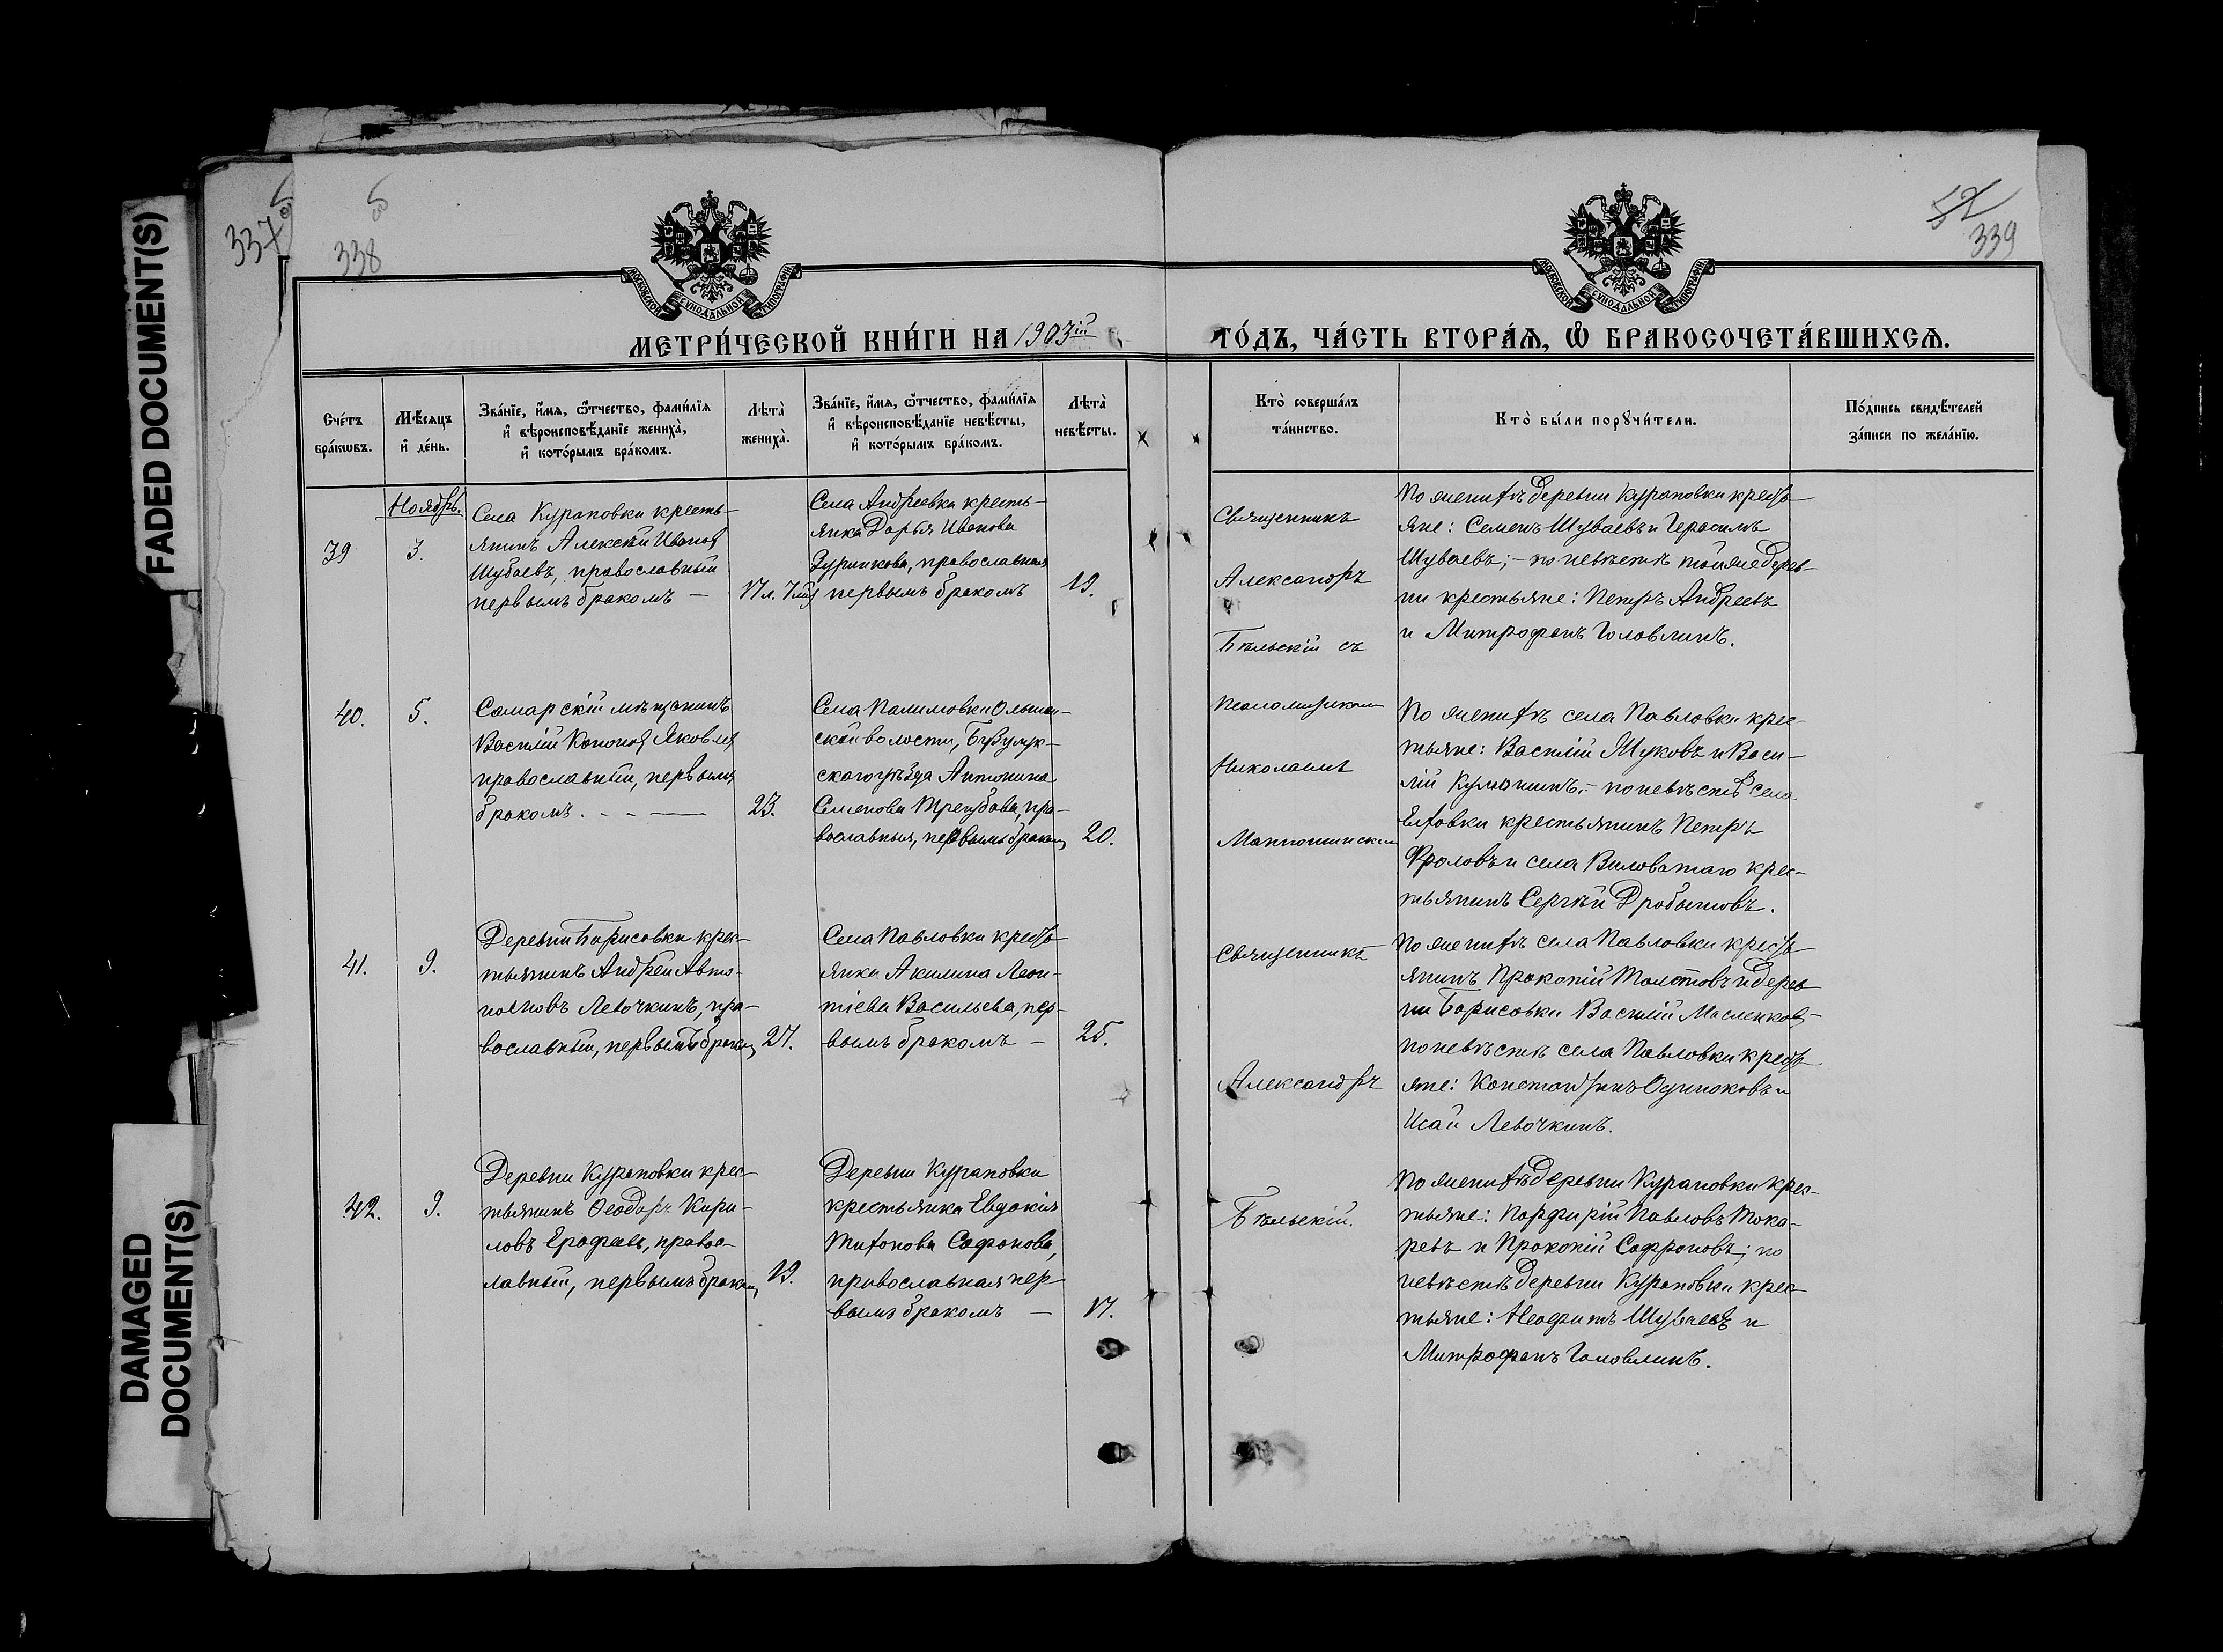 FADED DOCUMENT(S)
DAMAGED
DOCUMENT(S)
337
338
52
339
МОСКОВСКОЙ СУНОДАЛЬНОЙ ТИПОГРАФІИ
МОСКОВСКОЙ СУНОДАЛЬНОЙ ТИПОГРАФІИ
МЕТРИ́ЧЕСКОЙ КНИ́ГИ НА 1903 й
ГО́ДЪ, ЧА́СТЬ ВТОРА́Ѧ, Ѽ БРАКОСОЧЕТА́ВШИХСѦ.
Счéтъ
брáкѡвъ.
Мѣ́сяцъ
и҆ дéнь.
Звáнїе, и҆́мя, ѻ҆́тчество, фами́лїя
и҆ вѣроисповѣ́данїе женихà,
и҆ кото́рымъ брáкомъ.
Лѣтà
женихà.
Звáнїе, и҆́мя, ѻ҆́тчество, фами́лїя
и҆ вѣроисповѣ́данїе невѣ́сты,
и҆ кото́рымъ брáкомъ.
Лѣтà
невѣ́сты.
Ктò совершáлъ
тáинство.
Ктò бы́ли порꙋчи́тели.
Пóдпись свидѣ́телей
зáписи по желáнїю.
Ноябрь.
39
3.
Села Курановки кресть-
янинъ Алексѣй Иванов
Шуваевъ, православный
первымъ бракомъ —
17 л. 7 мц
Села Андреевки кресть-
янка Дарья Иванова
православная
первымъ бракомъ
19.
Священникъ
Александръ
Бѣльскій съ
По женихѣ деревни Курановки кресть-
яне: Семенъ Шуваевъ и Герасимъ
Шуваевъ; - по невѣстѣ той же дерев-
ни крестьяне: Петръ Андреевъ
и Митрофанъ Головлинъ.
40.
5.
Самарскій мѣщанинъ
Василій Кононов Яковлев
православный, первымъ
бракомъ. - - —
23.
Села Палимовки
ской волости, Бузулук-
скаго уѣзда Антонина
Семенова пра-
вославная, первымъ браком
20.
Псаломщиком
Николаемъ
По женихѣ села Павловки крес-
тьяне: Василій Жуковъ и Васи-
лій - по невѣстѣ села
Елховки крестьянинъ Петръ
Фроловъ и села Виловатаго крес-
тьянинъ Сергѣй Дробытовъ.
41.
9.
Деревни Борисовки крес-
тьянинъ Андрей Авто-
номовъ Левочкинъ, пра-
вославный, первымъ браком
27.
Села Павловки кресть-
янка Акилина Леон-
тіева Васильева, пер-
вымъ бракомъ —
25.
Священникъ
Александръ
По женихѣ села Павловки кресть-
янинъ Прокопій Толстовъ и дерев-
ни Борисовки Василій Масленков -
по невѣстѣ села Павловки кресть-
яне: Константинъ Одиноковъ и
Исай Левочкинъ.
42.
9.
Деревни Курановки крес-
тьянинъ Ѳеодоръ Кири-
ловъ Ерофеевъ, правос-
лавный, первымъ браком
19.
Деревни Курановки
крестьянка Евдокія
Тихонова Сафонова,
православная пер-
вымъ бракомъ —
17.
Бѣльскій.
По женихѣ деревни Курановки крес-
тьяне: Порфирій Павловъ Тока-
ревъ и Прокопій Сафроновъ; по
невѣстѣ деревни Курановки крес-
тьяне: Неофитъ Шуваевъ и
Митрофанъ Головлинъ.